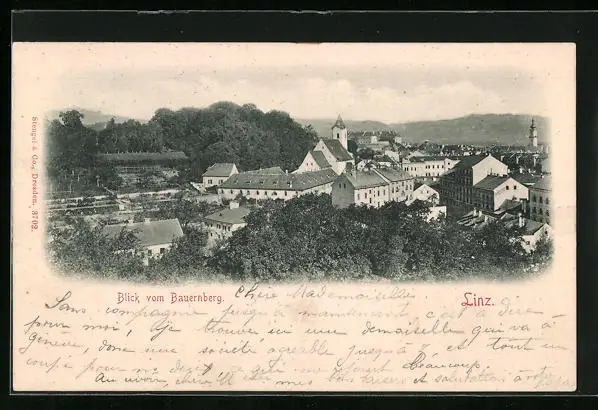 Stengel & Co., Dresden 8702.
Blick vom Bauernberg.
Linz.
Chère Mademoiselle
Sans compagnie jusqu'à maintenant c'est à dire
pour moi, je trouve ici une demoiselle qui va à
Genève, donc une société agréable jusqu'à et tout un
coupé pour me Beaucoup
Au revoir, chère mes bons baisers et salutations à